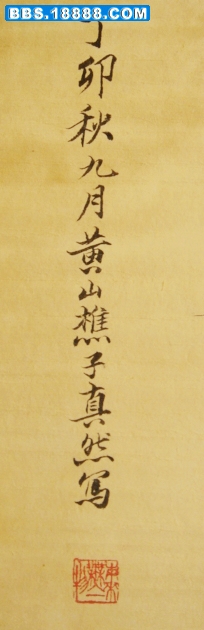 BBS.18888.COM
丁卯秋九月黄山樵子真然写